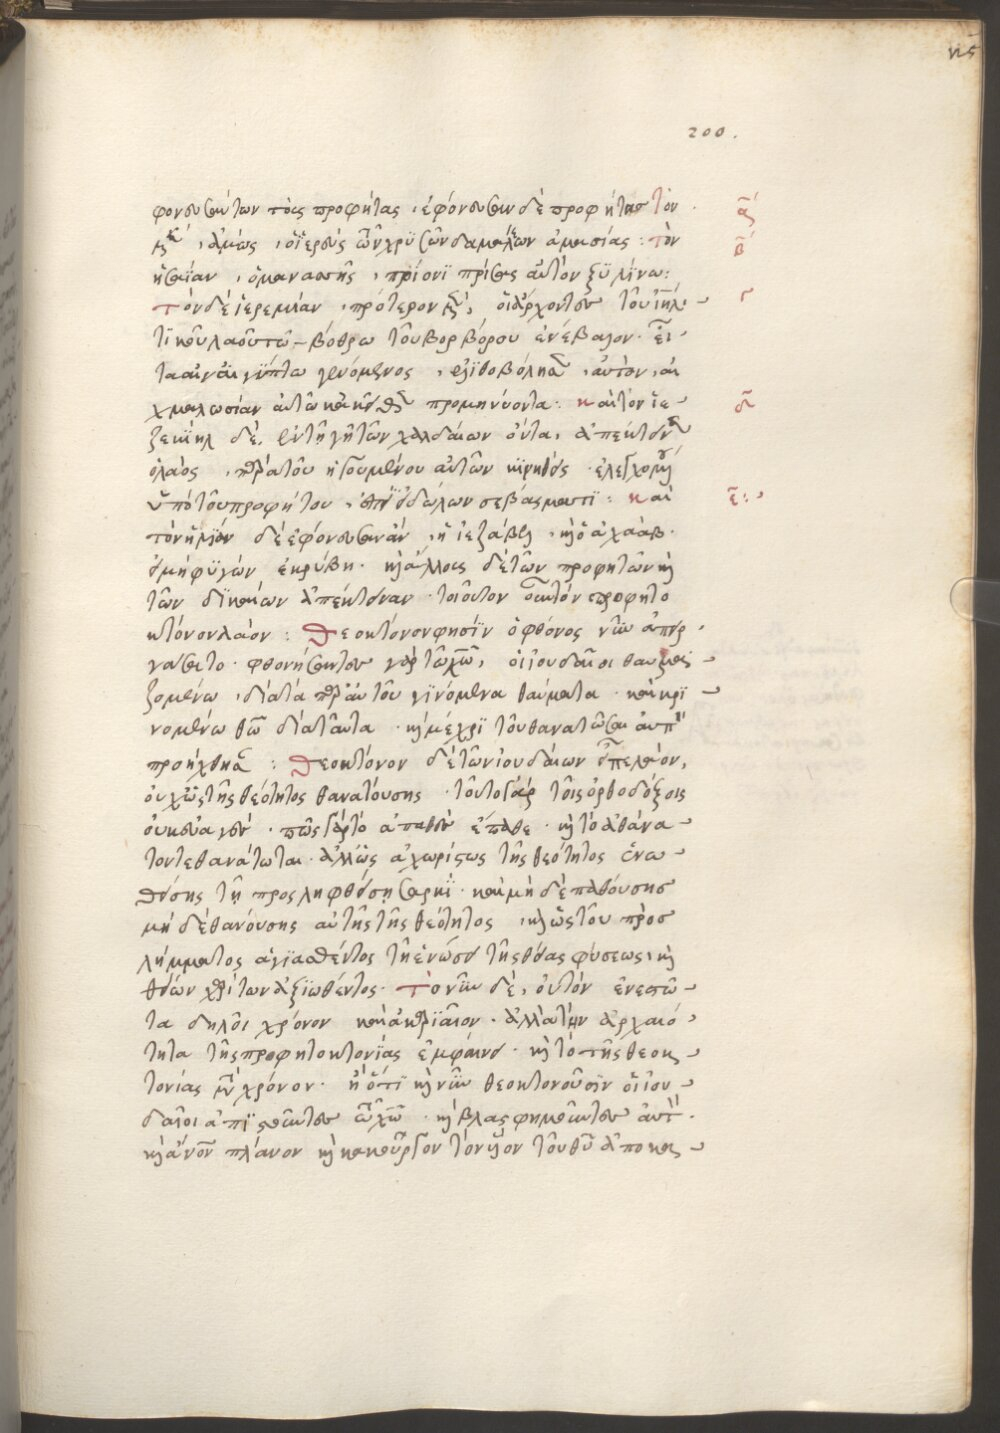 νϛ
200.
φονευσάντων τοὺς προφήτας, ἐφόνευσαν δὲ προφήτας τὸν α
ἀμώς, ὁ ἱερεὺς τῶν χρυσῶν δαμάλεων ἀμασίας: τὸν β
ἡσαΐαν, ὁ μανασσῆς, πρίονι πρίσας αὐτὸν ξυλίνω:
τὸν δὲ ἱερεμίαν, πρότερον οἱ ἄρχοντες τοῦ ἰηλ γ
τικοῦ λαοῦ τῶ βόθρω τοῦ βορβόρου ἐνέβαλον. εἶ
τα ἐν αἰγύπτω γενόμενος, ἐλιθοβόλησαν αὐτὸν, αἰ
χμαλωσίαν αὐτῶ προμηνύοντα: καὶ τὸν ἰε δ
ζεκιὴλ δὲ, ἐν τῆ γῆ τῶν χαλδαίων ὄντα, ἀπέκτεινεν
ὁ λαὸς, παρὰ τοῦ ἡγουμένου αὐτῶν ἐλεγχομένου
ὑπὸ τοῦ προφήτου, ἐπὶ εἰδώλων σεβάσματι: καὶ ε:
τὸν ἠλίαν δὲ ἐφόνευσαν ἂν, ἡ ἰεζάβελ, καὶ ὁ ἀχαάβ.
εἰ μὴ φυγὼν ἐκρύβη. καὶ ἄλλους δὲ τῶν προφητῶν καὶ
τῶν δικαίων ἀπέκτειναν. τοιοῦτον τὸν προφητο
κτόνον λαὸν: θεοκτόνον φησὶν ὁ φθόνος νῦν ἀπειρ
γάσατο. φθονήσαντες γὰρ τῶ χῶ, οἱ ἰουδαῖοι θαυμα
ζομένω, διὰ τὰ παρ' αὐτοῦ γινόμενα θαύματα. καὶ κρι
νομένω θῶ διὰ ταῦτα. καὶ μέχρι τοῦ θανατῶσαι αὐτὸν
προήχθησαν: θεοκτόνον δὲ τῶν ἰουδαίων
οὐχ ὡς τῆς θεότητος θανατούσης. τοῦτο γὰρ τοῖς ὀρθοδόξοις
οὐκ εὐαγὲς. πῶς γὰρ τὸ ἀπαθὲς ἔπαθε. καὶ τὸ ἀθάνα
τον τεθανάτωται. ἀλλ' ὡς ἀχωρίστως τῆς θεότητος ἑνω
θείσης τῆ προσληφθείση σαρκὶ. καὶ μὴ δὲ παθούσης
μὴ δὲ θανούσης αὐτῆς τῆς θεότητος, καὶ ὡς τοῦ προσ
λήμματος ἁγιασθέντος τῆ ἑνώσει τῆς θείας φύσεως, καὶ
θείων χαρίτων ἀξιωθέντος. τὸ νῦν δὲ, οὐ τὸν ἐνεστῶ
τα δηλοῖ χρόνον καὶ ἀκαριαῖον. ἀλλὰ τὴν ἀρχαιό
τητα τῆς προφητοκτονίας ἐμφαίνει. καὶ τὸ τῆς θεοκ
τονίας χρόνον. ἢ ὅτι καὶ νῦν θεοκτονοῦσιν οἱ ἰου
δαῖοι ἀπιστοῦντες χῶ. καὶ βλασφημοῦντες αὐτὸν.
καὶ ἄνον πλάνον καὶ κακοῦργον τὸν υἱὸν τοῦ θῦ ἀποκα